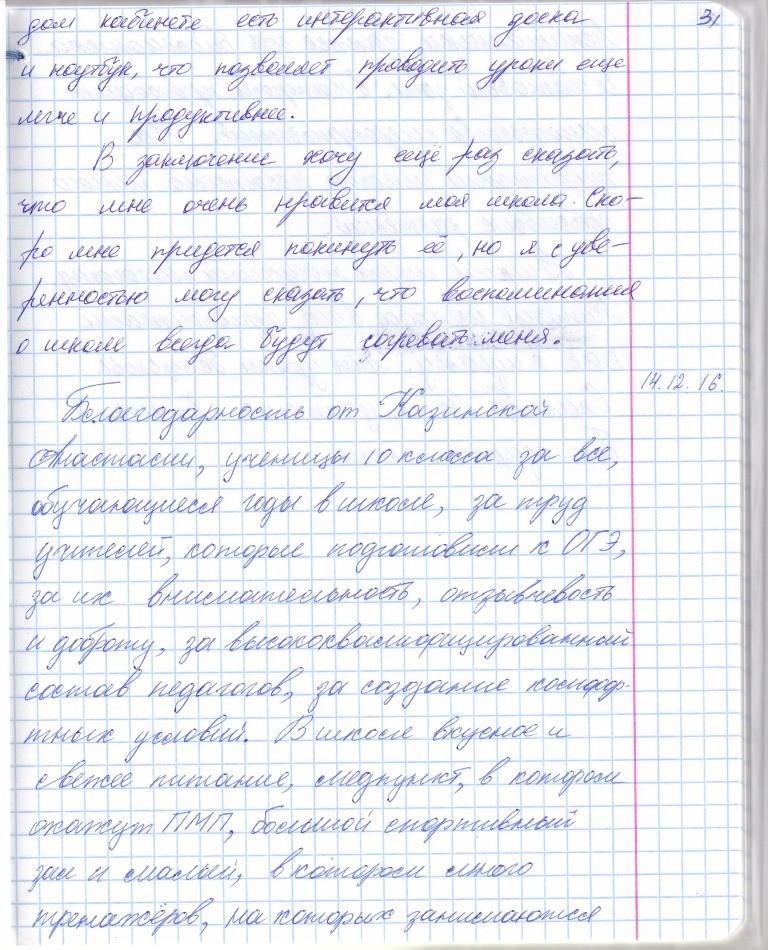 3
дом кабинете есть интерактивная доска
и ноутбук, что позволяет проводить уроки еще
легче и продуктивнее.
В заключение хочу ещё раз сказать,
что мне очень нравится моя школа. Ско-
ро мне придется покинуть её, но я с уве-
ренностью могу сказать, что воспоминания
о школе всегда будут согревать меня.
14.12.16.
Благодарность от Казинской
Анастасии, ученицы 10 класса за все,
обучающиеся годы в школе, за труд
учителей, которые подготовили к ОГЭ,
за их внимательность, отзывчевость
и доброту, за высококвалифицированный
состав педагогов, за создание комфор-
тных условий. В школе вкусное и
свежее питание, медпункт, в котором
окажут ПМП, большой спортивный
зал и малый, в котором много
тренажёров, на которых занимаются